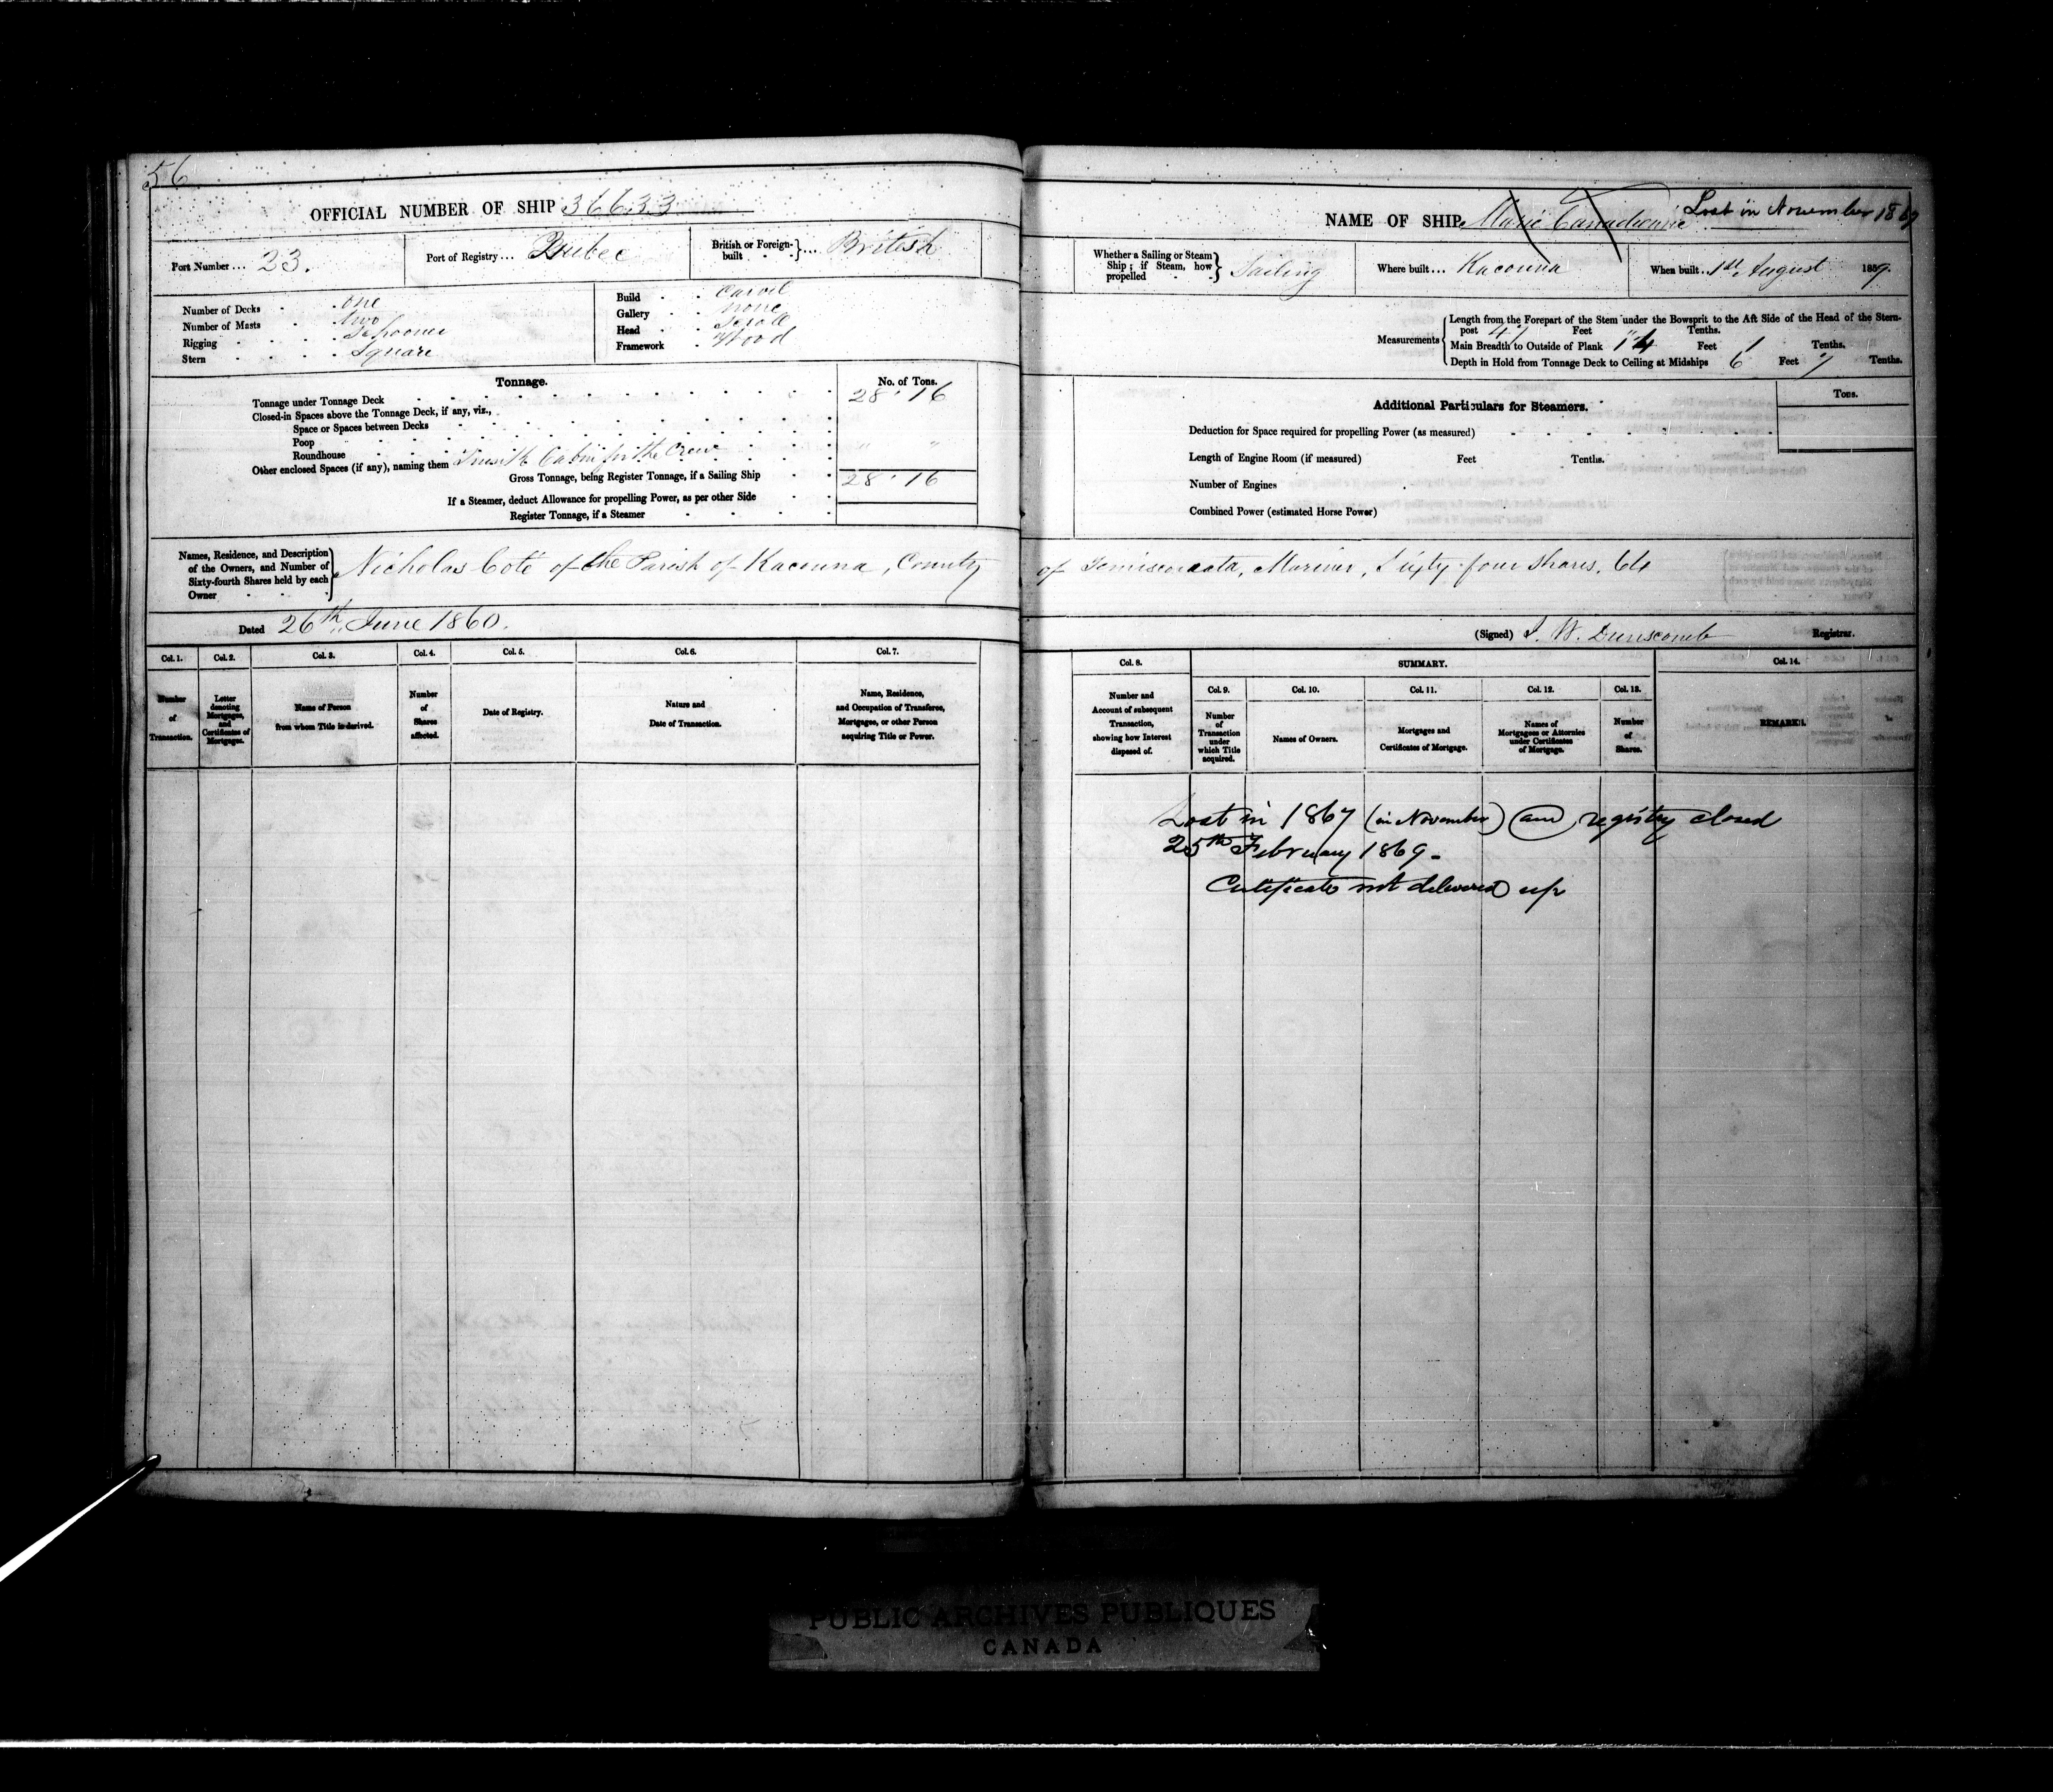 56
OFFICIAL NUMBER OF SHIP 36633
Port Number... 23.
Port of Registry... Quebec
British or Foreign-built } ... British
Number of Decks one
Number of Masts two
Rigging Schooner
Stern Square
Build Carvil
Gallery none
Head Scroll
Framework Wood
Tonnage. No. of Tons.
Tonnage under Tonnage Deck 28.16
Closed-in Spaces above the Tonnage Deck, if any, viz.,
Space or Spaces between Decks
Poop
Roundhouse " "
Other enclosed Spaces (if any), naming them Cabin for the Crew
Gross Tonnage, being Register Tonnage, if a Sailing Ship 28.16
If a Steamer, deduct Allowance for propelling Power, as per other Side
Register Tonnage, if a Steamer
NAME OF SHIP Marie Canadienne Lost in November 1867
Whether a Sailing or Steam Ship; if Steam, how propelled } Sailing
Where built... Kacouna
When built.. 1st August 1859.
Measurements
Length from the Forepart of the Stem under the Bowsprit to the Aft Side of the Head of the Stern-
post 47 Feet Tenths.
Main Breadth to Outside of Plank 14 Feet 1 Tenths.
Depth in Hold from Tonnage Deck to Ceiling at Midships 6 Feet 7 Tenths.
Additional Particulars for Steamers. Tons.
Deduction for Space required for propelling Power (as measured)
Length of Engine Room (if measured) Feet Tenths.
Number of Engines
Combined Power (estimated Horse Power)
Names, Residence, and Description
of the Owners, and Number of
Sixty-fourth Shares held by each
Owner
Nicholas Coté of the Parish of Kacouna, County of Temiscouata, Mariner, Sixty-four Shares, 64
Dated 26th June 1860.
(Signed) J. W. Dunscomb Registrar.
Col. 1. Col. 2. Col. 3. Col. 4. Col. 5. Col. 6. Col. 7.
Number of Transaction.
Letter denoting Mortgages, and Certificates of Mortgages.
Name of Person from whom Title is derived.
Number of Shares affected.
Date of Registry.
Nature and Date of Transaction.
Name, Residence, and Occupation of Transferee, Mortgagee, or other Person acquiring Title or Power.
Col. 8. SUMMARY. Col. 14.
Col. 9. Col. 10. Col. 11. Col. 12. Col. 13.
Number and Account of subsequent Transaction, showing how Interest disposed of.
Number of Transaction under which Title acquired.
Names of Owners.
Mortgages and Certificates of Mortgage.
Names of Mortgagees or Attornies under Certificates of Mortgage.
Number of Shares.
REMARKS.
Lost in 1867 (in November) and registry closed
25th February 1869.
Certificate not delivered up
PUBLIC ARCHIVES PUBLIQUES
CANADA